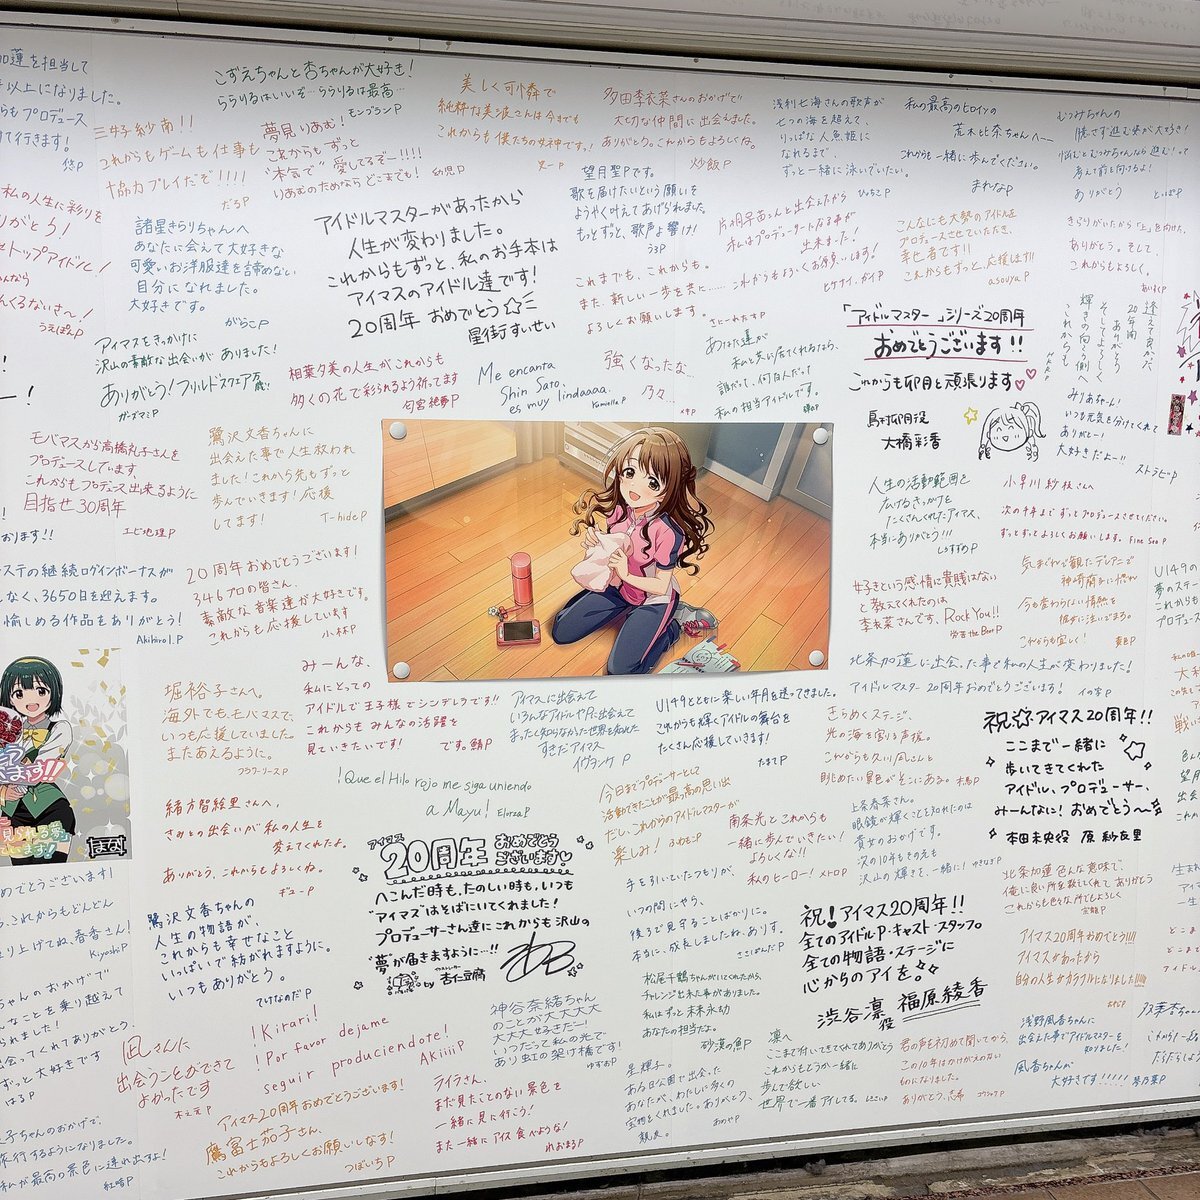 加蓮を担当して
以上になりました。
らもプロデュース
て行きます!
悠P
三好紗南!!
これからもゲームも仕事も
協力プレイだぞ!!!!
だるP
こずえちゃんと杏ちゃんが大好き!
らりるはいいぞ…らりるは最高…
モンブランP
夢見りあむ!
これからもずっと
"本気で"愛してるぞー!!!!
りあむのためなら どこまでも!
幼児P
美しく可憐で
純粋な美波さんは今までも
これからも僕たちの女神です!!
多田李衣菜さんのおかげで
大切な仲間に出会えました。
ありがとう。これからもよろしくね。
炒飯P
浅利七海さんの歌声が
七つの海を超えて、
りっぱな人魚姫に
なれるまで、
ずっと一緒に泳いでいたい。
ひちこP
私の最高のヒロインの
荒木比奈ちゃんへ
これからも一緒に歩んでください。
まれなP
むつみちゃんの
ありがとう
とっぽP
私の人生に彩りを
りがとう!
トップアイドル!
うえぽんP
諸星きらりちゃんへ
あなたに会えて大好きな
可愛いお洋服達を諦めない
自分になれました。
大好きです。
がらこP
アイドルマスターがあったから
人生が変わりました。
これからもずっと、私のお手本は
アイマスのアイドル達です!
20周年 おめでとう☆
星街すいせい
望月聖Pです。
歌を届けたいという願いを
ようやく叶えてあげられました。
もっとずっと、歌声よ響け!
う3P
片桐早苗さんと出会えたから
私はプロデューサーになる事が
出来ました!
これからもよろしくお願いします!
ヒゲナイ・ガイP
こんなにも大勢のアイドルを
プロデュースさせていただき、
幸せ者です!!
これからもずっと、応援します!!
asouyaP
きらりがいたから「上」を向けた。
ありがとう。そして、
これからもよろしく。
これまでも、これからも。
また、新しい一歩を共に……
よろしくお願いします。
さとーれたすP
「アイドルマスター」シリーズ20周年
おめでとうございます!!
これからも卯月と頑張ります♡♡
島村卯月役
大橋彩香
逢えて良かった
20年間
ありがとう
そしてよろしく
輝きの向こう側へ
これからも
みりあちゃん!
いつも元気を分けてくれて
ありがとー!
大好きだよー!!
ストラビP
アイマスをきっかけに
沢山の素敵な出会いが ありました!
ありがとう!フリルドスクエア万歳!!
ガーズマミP
相葉夕美の人生がこれからも
多くの花で彩られるよう祈ってます
匂宮絶夢P
Me encanta
Shin Sato.
es muy lindaaaa.
KamiellaP
強くなったな…
乃々
あなた達が
私と共に居てくれるなら、
誰だって、何百人だって
私の担当アイドルです。
モバマスから高橋礼子さんを
プロデュースしています。
これからもプロデュース出来るように
目指せ30周年
エビ地理P
鷺沢文香ちゃんに
出会えた事で人生救われ
ました!これから先もずっと
歩んでいきます!応援
してます!
T-hideP
人生の活動範囲を
広げるきっかけを
たくさんくれたアイマス、
本当にありがとう!!!
しょうすずめP
小早川紗枝さんへ
次の十年までずっとプロデュースさせてください。
ずっとずっとよろしくお願いします。
Fine SeaP
おります!!
ステの継続ログインボーナスが
なく、3650日を迎えます。
愉しめる作品をありがとう!
Akihiro I.P
20周年おめでとうございます!
346プロの皆さん、
素敵な音楽達が大好きです。
これからも応援しています
小林P
好きという感情に貴賤はない
と教えてくれたのは
李衣菜さんです、RockYou!!
労苦 the BeatP
気まぐれで観たデレアニで
神崎蘭子に惚れ
今も変わらない情熱を
彼女に注いでまる。
これからも宜しく!
黄色P
U149の
夢のステー
これからも
プロデュース
北条加蓮に出会った事で私の人生が変わりました!
アイドルマスター20周年おめでとうございます! イの字P
堀裕子さんへ。
海外でも、モバマスで、
いつも応援していました。
またあえるように。
フラワーリースP
みーんな、
私にとっての
アイドルで王子様でシンデレラです!!
これからもみんなの活躍を
見ていきたいです!
です。鯖P
アイマスに出会えて
いろんなアイドルやPに出会えて
まったく知らなかった世界を知れた
すきだアイマス
イヴヲンケP
U149とともに楽しい年月を送ってきました。
これからも輝くアイドルの舞台を
たくさん応援していきます!
たまてP
きらめくステージ、
光の海を宿る声援。
これからも久川凪さんと
眺めたい景色がそこにある。 木馬P
祝☆アイマス20周年!!
ここまで一緒に
歩いてきてくれた
アイドル、プロデューサー、
みーんなに! おめでとう~
本田未央役 原 紗友里
まな
緒方智絵里さんへ、
きみとの出会いが私の人生を
変えてくれたよ。
ありがとう、これからもよろしくね。
ギューP
¡Que el Hilo rojo me siga uniendo
a Mayu! ElorzaP
今日までプロデューサーとして
活動できたことが最高の思い出
だし、これからのアイドルマスターが
楽しみ! ふわむこP
南条光とこれからも
一緒に歩んでいきたい!
よろしくな!!
私のヒーロー! メトロP
上条春菜さん。
眼鏡が輝くことを知れたのは
貴女のおかげです。
次の10年もその先も
沢山の輝きを、一緒に!
ゆきなぎP
アイマス
20周年 おめでとうございます♡
へこんだ時も、たのしい時も、いつも
"アイマス"はそばにいてくれました!
プロデューサーさん達にこれからも沢山の
"夢"が届きますように…!!
by 杏仁豆腐
手を引いていたつもりが、
いつの間にやら、
後ろで見守ることばかりに。
本当に、成長しましたね、ありす。
さきにぽんたP
祝!アイマス20周年!!
全てのアイドル・P・キャスト・スタッフ。
全ての物語・ステージに
心からのアイを。
渋谷凛役 福原綾香
北条加蓮 色んな意味で、
俺に良い所を教えてくれて ありがとう
これからも色々な所でもよろしく
アイマス20周年おめでとう!!!!
アイマスがあったから
自分の人生がカラフルになりました!!!!
めでとうございます!
、これからもどんどん
り上げてね、春香さん!
KiyoshiP
鷺沢文香ちゃんの
人生の物語が、
これからも幸せなこと
いっぱいで紡がれますように。
いつもありがとう。
てけなのだP
松尾千鶴ちゃんがいてくれたから、
チャレンジ出来た事がありました。
私はずっと未来永劫
あなたの担当だよ。
砂漠の魚P
ちゃんのおかげで
なことを乗り越えて
られました!
会ってくれてありがとう。
ずっと大好きです
はるP
凪さんに
出会うことができて
よかったです
¡Kirari!
¡Por favor dejame
seguir produciendote!
AKiiiiP
神谷奈緒ちゃん
のことが大大大大
大大大好きだー!
いつだって私の光で
あり虹の架け橋です!
ゆずあP
凛へ
ここまで付いてきてくれてありがとう
これからもどうか一緒に
歩んで欲しい
世界で一番アイしてる。
君の声を初めて聞いてから、
この10年はかけがえのない
ものになりました。
浅野風香ちゃんに
出会えた事でアイドルマスターを
知りました!
風香ちゃんが
大好きです!!!!!
琴乃葉P
アイマス20周年おめでとうございます!
鷹富士茄子さん、
これからもよろしくお願いしますな!
つぼいちP
ライラさん、
まだ見たことのない景色を
一緒に見に行こう!
また一緒にアイス食べような!
れおまるP
星輝子。
ある日公園で出会った
あなたが、わたしに多くの
宝物をくれました。ありがとう、
親友。
あめやP
子ちゃんのおかげで、
旅行するようになりました。
私が最高の景色に連れ出すよ!
紅晴P